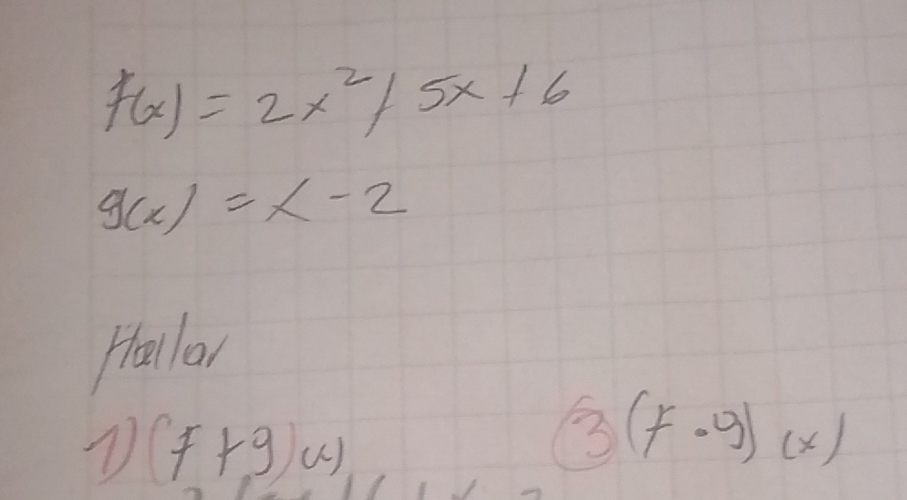 f(x) = 2x² + 5x + 6
g(x) = x - 2
Hallar
1) (f + g)(x)
3 (f · g) (x)